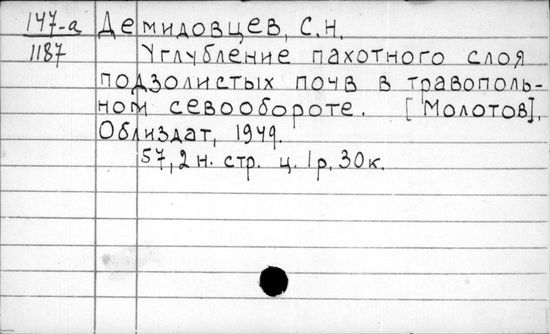 147-а Демидовцев, С.Н.
1187 Углубление пахотного слоя
подзолистых почв в травополь-
ном севообороте. [Молотов],
Облиздат, 1949.
57,2н. стр. ц. 1р. 30к.